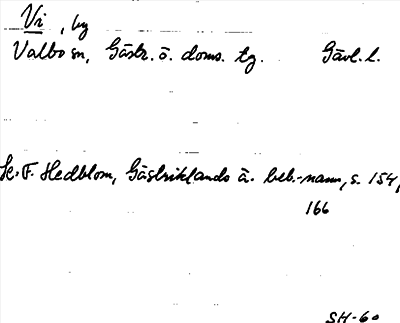 Vi, by
Valbo sn, Gästr. ö. doms. tg. Gävl. l.
Se F. Hedblom, Gästriklands ä. beb.-namn, s. 154,
166
SH-60